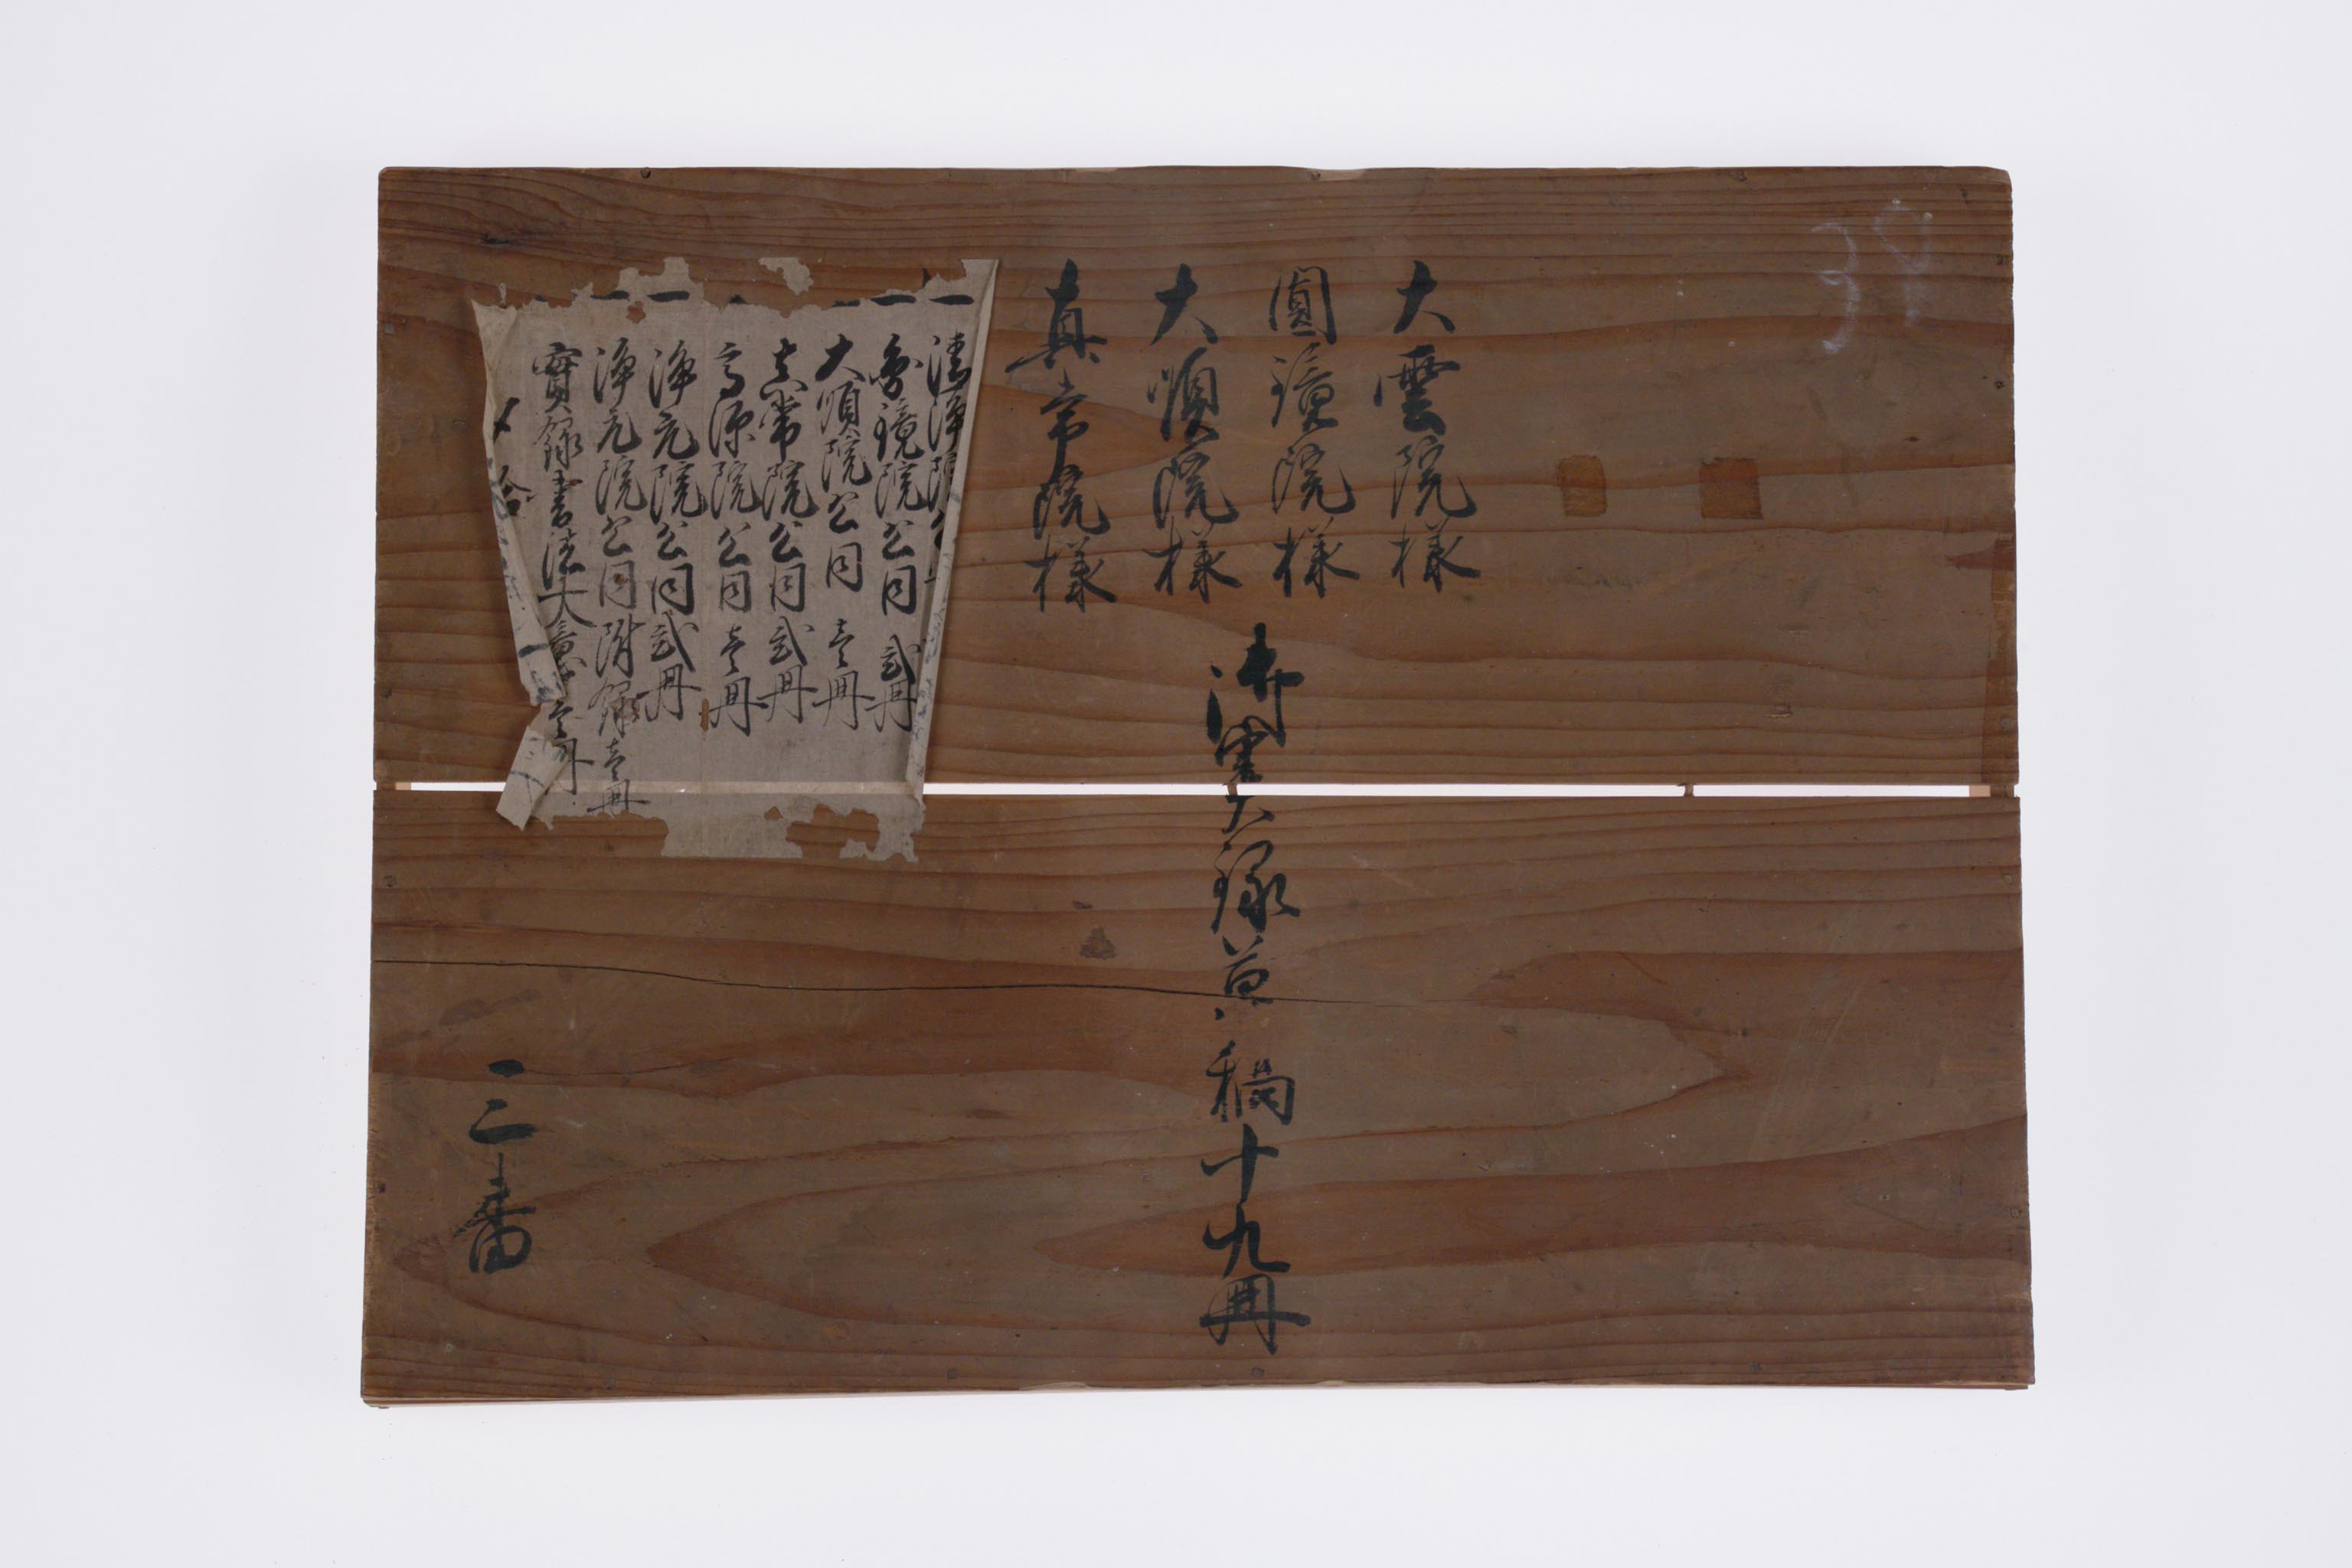 38
大雲院様
圓鏡院様
大順院様
真常院様
御実録草稿十九冊
三番
一 清浄院公
一 圓鏡院公同 弐冊
大順院公同 壱冊
真常院公同 弐冊
高源院公同 壱冊
一 浄元院公同 弐冊
一 浄元院公同附録壱冊
實録書法大意 壱冊
〆 拾